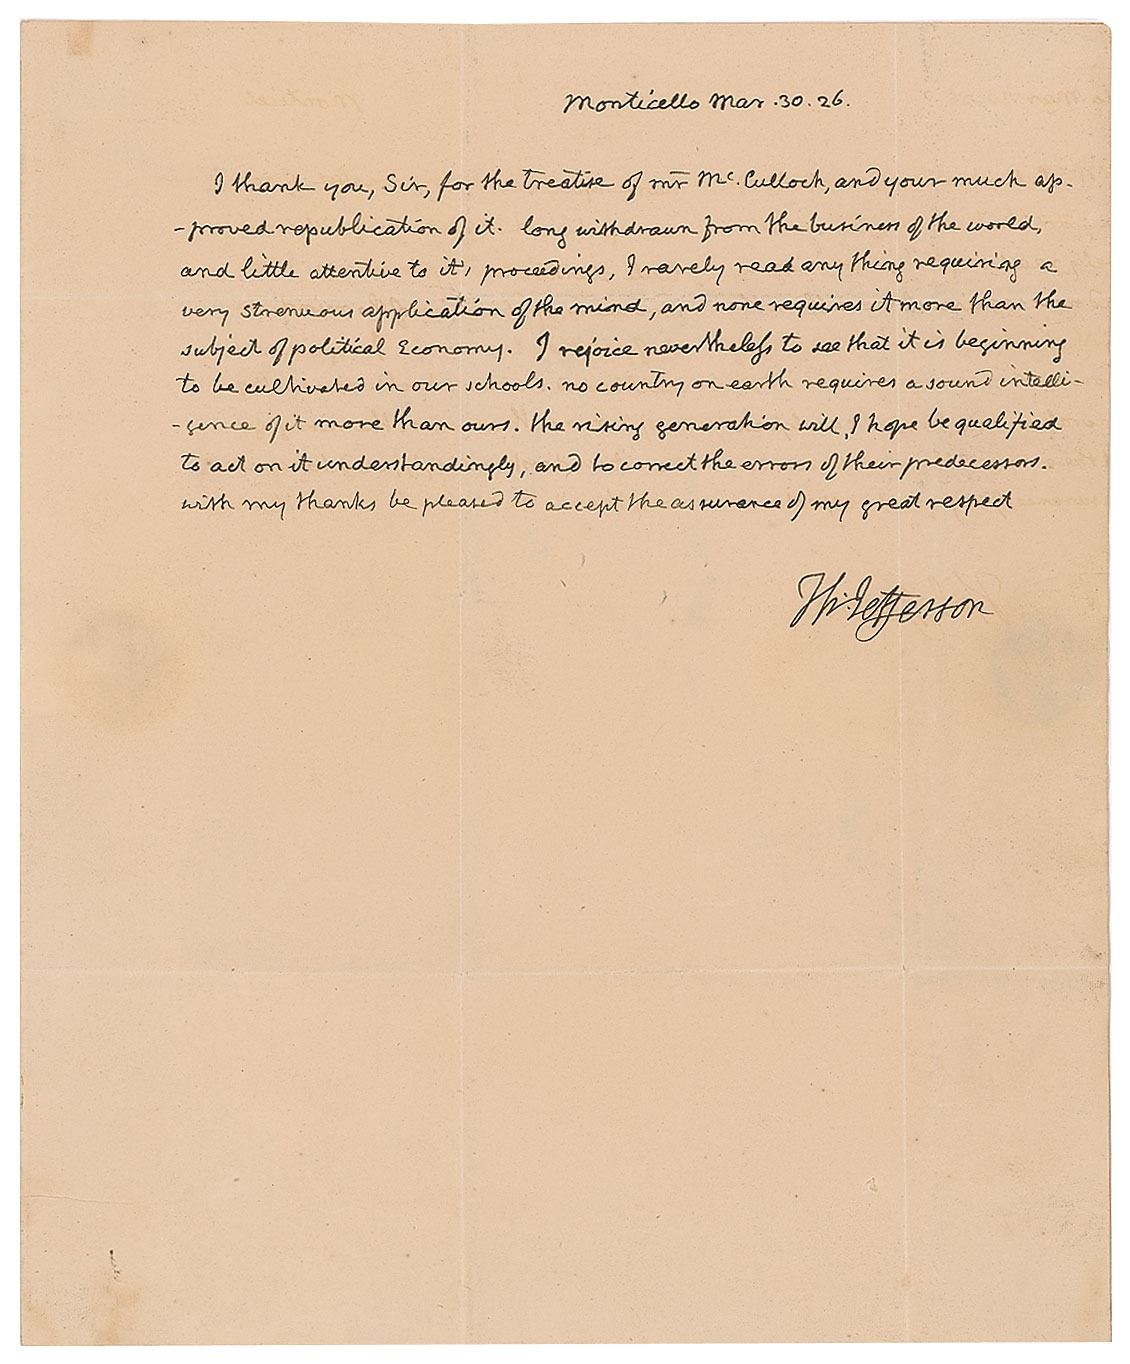 Monticello Mar. 30. 26.
I thank you, Sir, for the treatise of mr Mc. Culloch, and your much ap-
-proved republication of it. long withdrawn from the business of the world,
and little attentive to it's proceedings, I rarely read any thing requiring a
very strenuous application of the mind, and none requires it more than the
subject of political Economy. I rejoice nevertheless to see that it is beginning
to be cultivated in our schools. no country on earth requires a sound intelli-
-gence of it more than ours. the rising generation will, I hope be qualified
to act on it understandingly, and to correct the errors of their predecessors.
with my thanks be pleased to accept the assurance of my great respect
Th: Jefferson